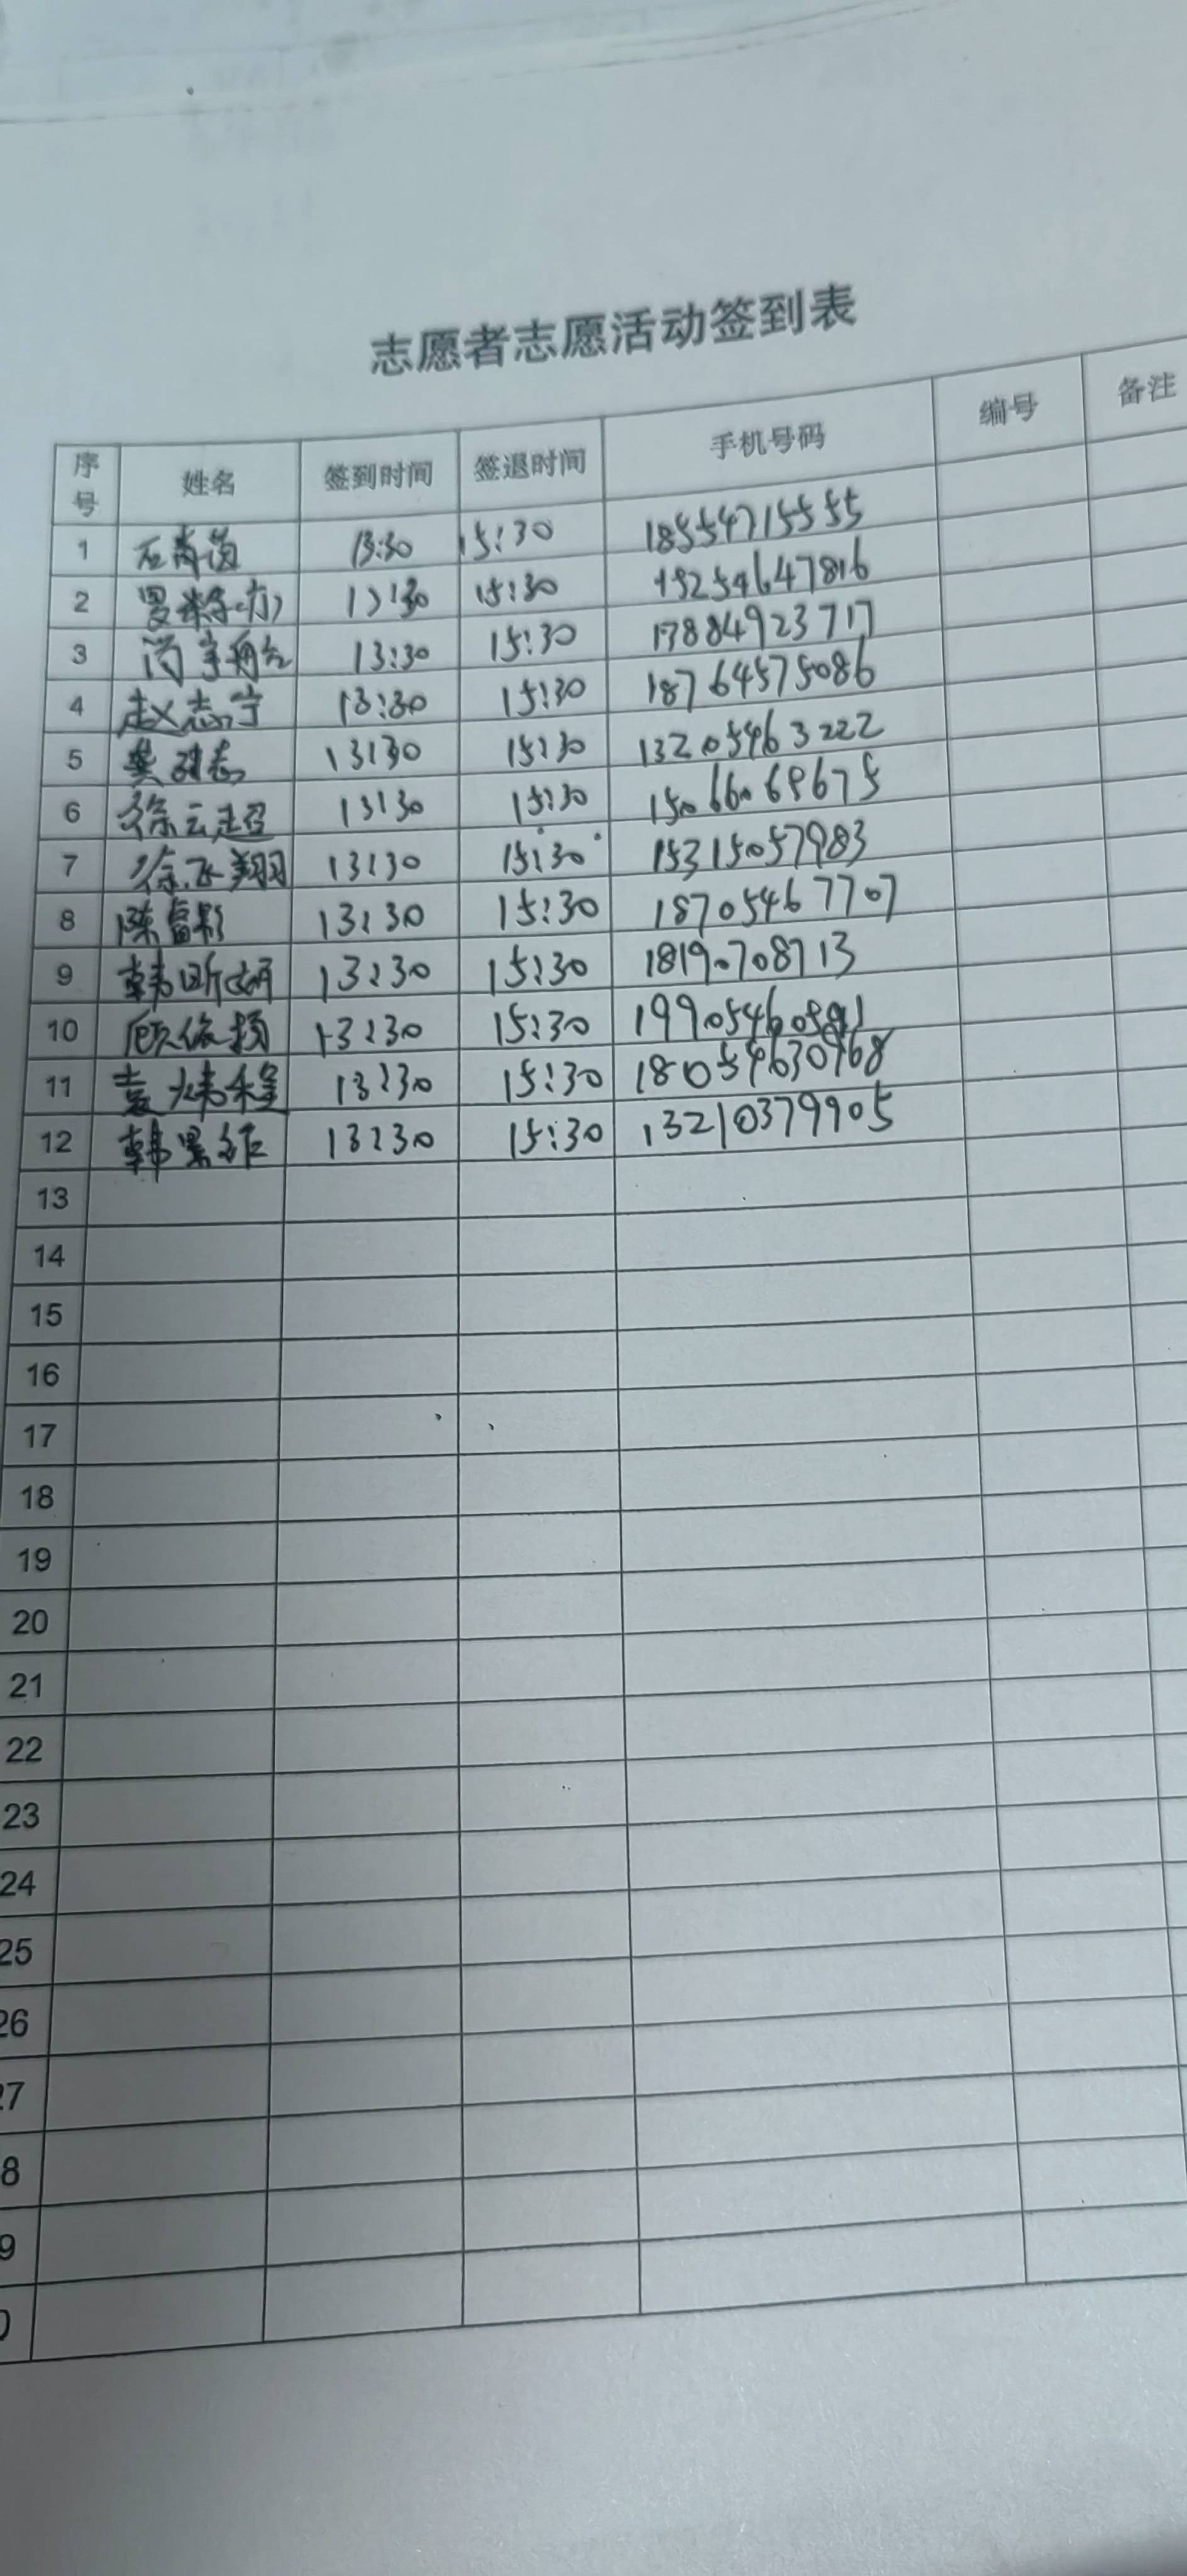 志愿者志愿活动签到表
序号 姓名 签到时间 签退时间 手机号码 编号 备注
1 13:30 15:30 18554715555
2 13:30 15:30 15254647816
3 13:30 15:30 17884923717
4 赵志宁 13:30 15:30 18764575086
5 13:30 15:30 13205463222
6 徐云超 13:30 15:30 15066069675
7 徐飞翔 13:30 15:30 15315057983
8 陈富彩 13:30 15:30 18705467707
9 韩昕妍 13:30 15:30 18190708713
10 顾依扬 13:30 15:30
11 袁炜程 13:30 15:30 18054630968
12 13:30 15:30 13210379905
13
14
15
16
17
18
19
20
21
22
23
24
25
26
27
8
9
0